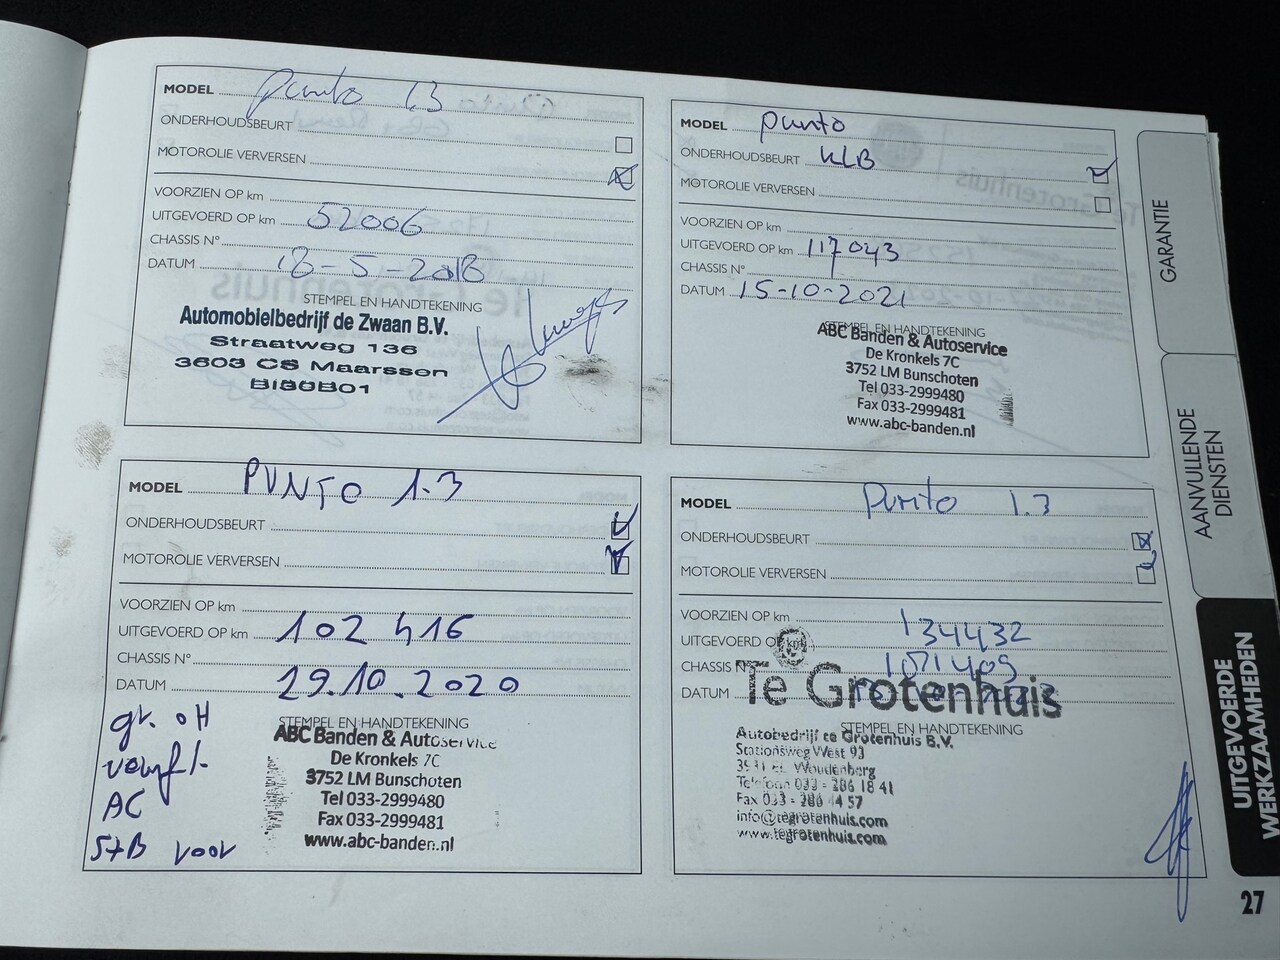 MODEL Punto 1.3
ONDERHOUDSBEURT
MOTOROLIE VERVERSEN
VOORZIEN OP km
UITGEVOERD OP km 52006
CHASSIS N°
DATUM 18-5-2018
STEMPEL EN HANDTEKENING
Automobielbedrijf de Zwaan B.V.
Straatweg 136
3603 CS Maarssen
MODEL Punto
ONDERHOUDSBEURT KLB
MOTOROLIE VERVERSEN
VOORZIEN OP km
UITGEVOERD OP km 117043
CHASSIS N°
DATUM 15-10-2021
STEMPEL EN HANDTEKENING
ABC Banden & Autoservice
De Kronkels 7C
3752 LM Bunschoten
Tel 033-2999480
Fax 033-2999481
www.abc-banden.nl
MODEL PUNTO 1.3
ONDERHOUDSBEURT
MOTOROLIE VERVERSEN
VOORZIEN OP km
UITGEVOERD OP km 102 416
CHASSIS N°
DATUM 29.10.2020
gr. OH
AC
STB voor
STEMPEL EN HANDTEKENING
ABC Banden & Autoservice
De Kronkels 7C
3752 LM Bunschoten
Tel 033-2999480
Fax 033-2999481
www.abc-banden.nl
MODEL Punto 1.3
ONDERHOUDSBEURT
MOTOROLIE VERVERSEN
VOORZIEN OP km
UITGEVOERD OP km 134432
CHASSIS N°
DATUM
Te Grotenhuis
STEMPEL EN HANDTEKENING
Autobedrijf te Grotenhuis B.V.
Stationsweg West 93
Woudenberg
Telefoon 033 - 286 18 41
Fax 033 - 286 44 57
info@tegrotenhuis.com
www.tegrotenhuis.com
GARANTIE
AANVULLENDE
DIENSTEN
UITGEVOERDE
WERKZAAMHEDEN
27